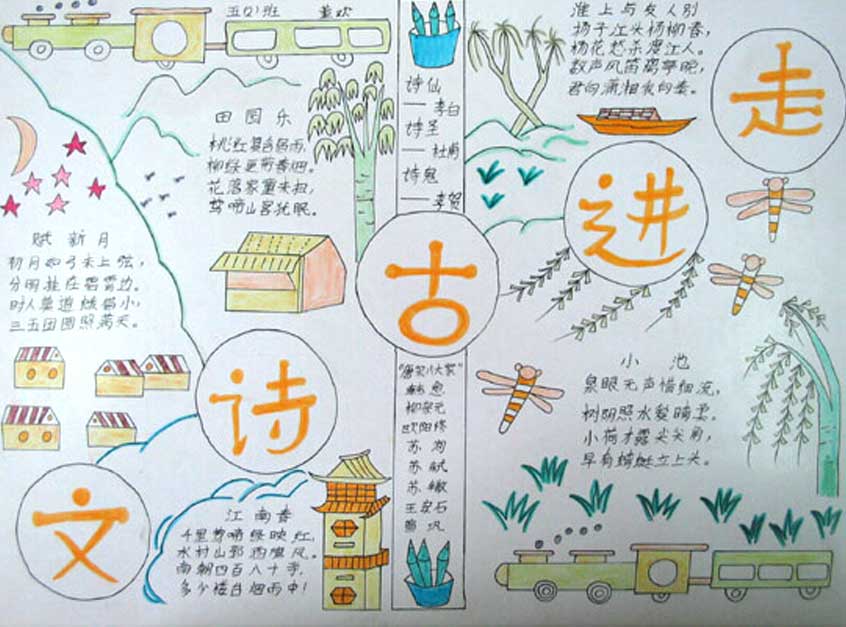 走
进
古
诗
文
五(2)班
淮上与友人别
扬子江头杨柳春，
杨花愁杀渡江人。
数声风笛离亭晚，
君向潇湘我向秦。
诗仙
——李白
诗圣
——杜甫
诗鬼
——李贺
田园乐
桃红复含宿雨，
柳绿更带春烟。
花落家童未扫，
莺啼山客犹眠。
赋新月
初月如弓未上弦，
分明挂在碧霄边。
时人莫道蛾眉小，
三五团圆照满天。
"唐宋八大家"
韩愈
柳宗元
欧阳修
苏洵
苏轼
苏辙
王安石
曾巩
小池
泉眼无声惜细流，
树阴照水爱晴柔。
小荷才露尖尖角，
早有蜻蜓立上头。
江南春
千里莺啼绿映红，
水村山郭酒旗风。
南朝四百八十寺，
多少楼台烟雨中！